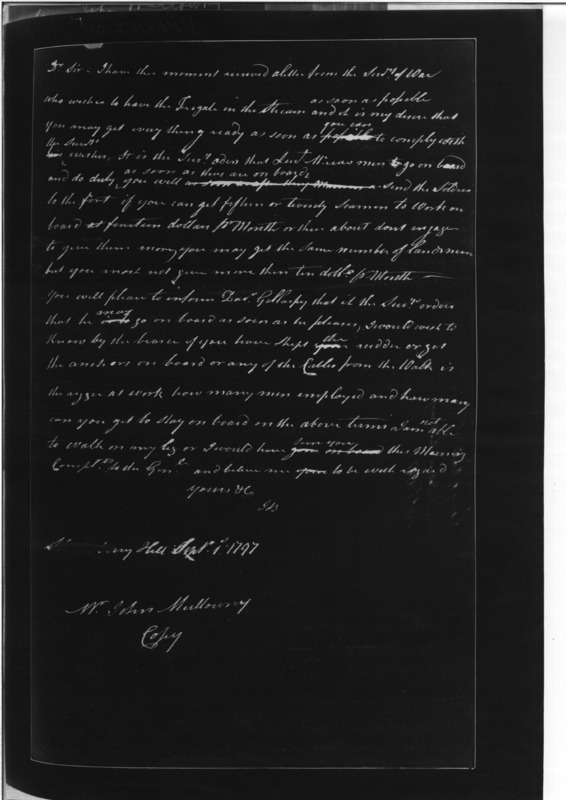 Dr Sir - I have this moment received a letter from the Secry of War
who wishes to have the Fregate in the stream as soon as possible and it is my desire that
you may get every thing ready as soon as possible you can to comply with
the Secrys wishes, It is the Secry orders that Lieut men to go on board
and do duty, as soon as they are on board you will send the Soldiers
to the fort if you can get fifteen or twenty seamen to work on
board at fourteen dollars pr Month or there about dont engage
to give them more, you may get the same number of landsmen
but you must not give more then ten dolls pr Month —
You will please to inform Doar Gillaspy that it the Secry orders
that he may go on board as soon as he pleases, I would wish to
know by the bearer if you have shipt the rudder or got
the anchors on board or any of the Cables from the Walk is
the at work how many men employed and how many
can you get to stay on board on the above terms I am not able
to walk on my leg or I would have seen you on board this Morning
Complts to the Genl and believe me to be with regard
yours &c
JB
Hill Sept 1st 1797
Mr John Mullowny
Copy